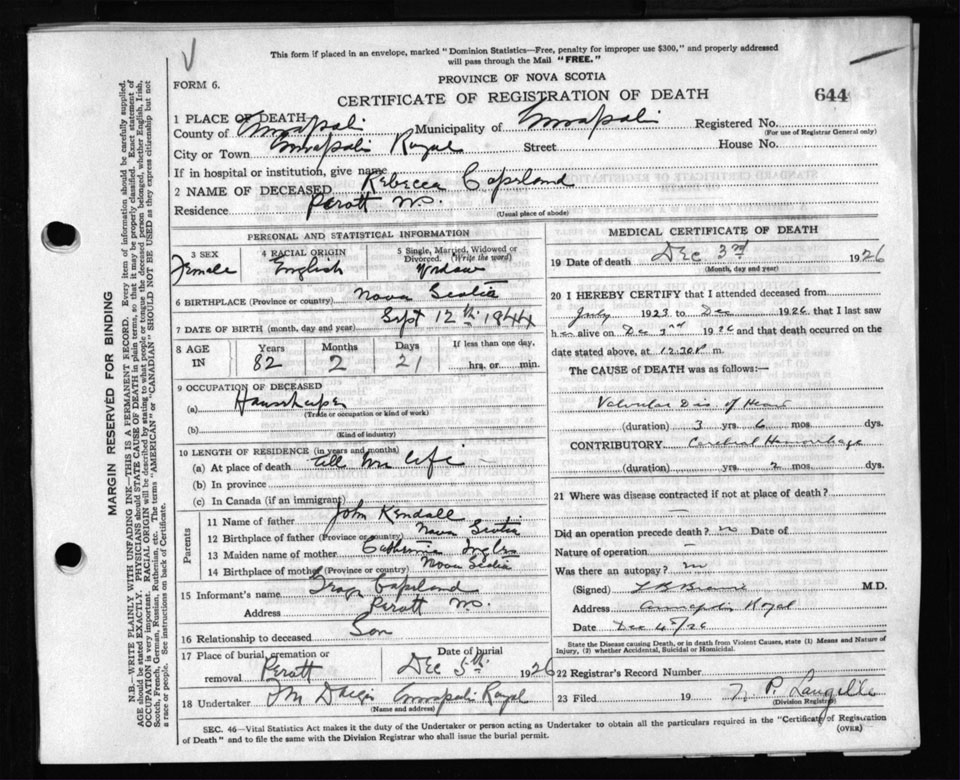 This form if placed in an envelope, marked "Dominion Statistics—Free, penalty for improper use $300," and properly addressed
will pass through the Mail "FREE."
FORM 6.
PROVINCE OF NOVA SCOTIA
CERTIFICATE OF REGISTRATION OF DEATH
644
1 PLACE OF DEATH
County of Annapolis Municipality of Annapolis Registered No.
(For use of Registrar General only)
City or Town Annapolis Royal Street House No.
If in hospital or institution, give name
2 NAME OF DECEASED Rebecca Copeland
Residence Parott N.S.
(Usual place of abode)
PERSONAL AND STATISTICAL INFORMATION
3 SEX Female
4 RACIAL ORIGIN English
5 Single, Married, Widowed or Divorced. (Write the word) Widow
6 BIRTHPLACE (Province or country) Nova Scotia
7 DATE OF BIRTH (month, day and year) Sept 12th 1844
8 AGE IN Years 82 Months 2 Days 21 If less than one day. hrs. or min.
9 OCCUPATION OF DECEASED
(a) Housekeeper
(Trade or occupation or kind of work)
(b)
(Kind of industry)
10 LENGTH OF RESIDENCE (in years and months)
(a) At place of death all her life
(b) In province
(c) In Canada (if an immigrant)
Parents
11 Name of father John Kendall
12 Birthplace of father (Province or country) Nova Scotia
13 Maiden name of mother Catherine
14 Birthplace of mother (Province or country) Nova Scotia
15 Informant's name Copeland
Address Parott N.S.
16 Relationship to deceased Son
17 Place of burial, cremation or removal Parott
Date of burial Dec 5th 1926
18 Undertaker Annapolis Royal
(Name and address)
MEDICAL CERTIFICATE OF DEATH
19 Date of death Dec 3rd 1926
(Month, day and year)
20 I HEREBY CERTIFY that I attended deceased from
July 1923 to Dec 1926, that I last saw
her alive on Dec 3rd 1926 and that death occurred on the
date stated above, at 12.30 P m.
The CAUSE of DEATH was as follows:—
Valvular Dis. of Heart
(duration) 3 yrs. 6 mos. dys.
CONTRIBUTORY Cerebral Hemorrhage
(duration) yrs. 2 mos. dys.
21 Where was disease contracted if not at place of death?
—
Did an operation precede death? no Date of
Nature of operation —
Was there an autopsy? no
(Signed) L B Braine M.D.
Address Annapolis Royal
Date Dec 4th/26
State the Disease causing Death, or in death from Violent Causes, state (1) Means and Nature of
Injury, (2) whether Accidental, Suicidal or Homicidal.
22 Registrar's Record Number
23 Filed 19 P. Langille
(Division Registrar)
SEC. 46—Vital Statistics Act makes it the duty of the Undertaker or person acting as Undertaker to obtain all the particulars required in the "Certificate of Registration
of Death" and to file the same with the Division Registrar who shall issue the burial permit.
(OVER)
MARGIN RESERVED FOR BINDING
N.B.—WRITE PLAINLY WITH UNFADING INK—THIS IS A PERMANENT RECORD. Every item of information should be carefully supplied.
AGE should be stated EXACTLY. PHYSICIANS should STATE CAUSE OF DEATH in plain terms, so that it may be properly classified. Exact statement of
OCCUPATION is very important. RACIAL ORIGIN will be described by stating to what people or tongue the deceased person belonged, whether English, Irish,
Scotch, French, German, Russian, Ruthenian, etc. The terms "AMERICAN" or "CANADIAN" SHOULD NOT BE USED as they express citizenship but not
a race or people. See instructions on back of Certificate.